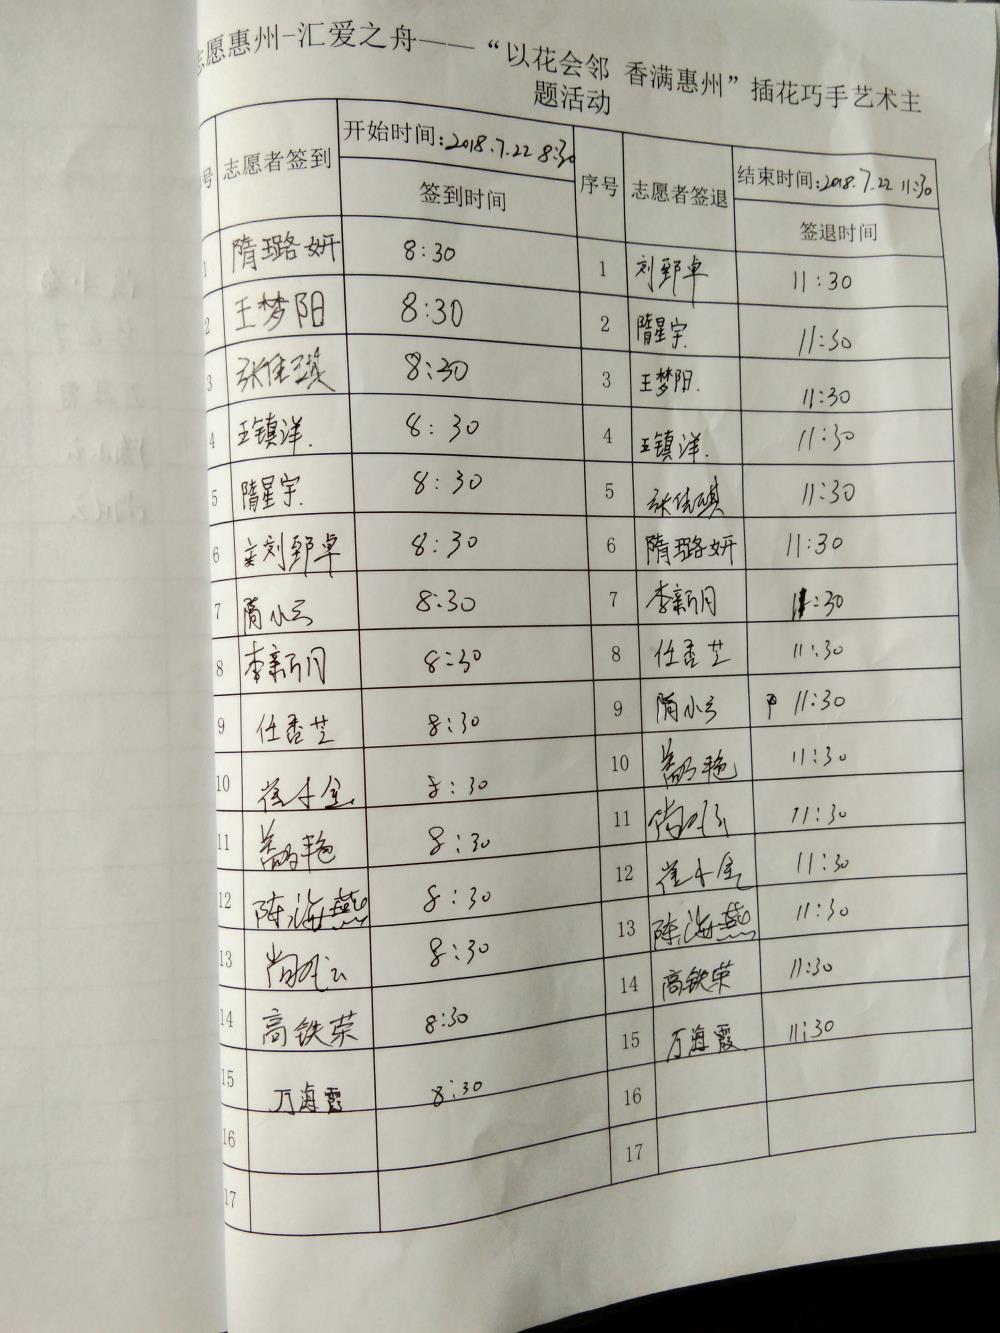 志愿惠州-汇爱之舟——“以花会邻 香满惠州”插花巧手艺术主
题活动
号 志愿者签到 开始时间:2018.7.22 8:30 序号 志愿者签退 结束时间:2018.7.22 11:30
签到时间 签退时间
1 隋璐妍 8:30 1 刘郅卓 11:30
2 王梦阳 8:30 2 隋星宇. 11:30
3 张佳琪 8:30 3 王梦阳. 11:30
4 王镇洋. 8:30 4 王镇洋. 11:30
5 隋星宇. 8:30 5 张佳琪 11:30
6 刘郅卓 8:30 6 隋璐妍 11:30
7 隋小云 8:30 7 李新月 11:30
8 李新月 8:30 8 任香芝 11:30
9 任香芝 8:30 9 隋小云 11:30
10 崔小金 8:30 10 艳 11:30
11 艳 8:30 11 尚 11:30
12 陈海燕 8:30 12 崔小金 11:30
13 尚 8:30 13 陈海燕 11:30
14 高铁荣 8:30 14 高铁荣 11:30
15 万海霞 8:30 15 万海霞 11:30
16 16
17 17